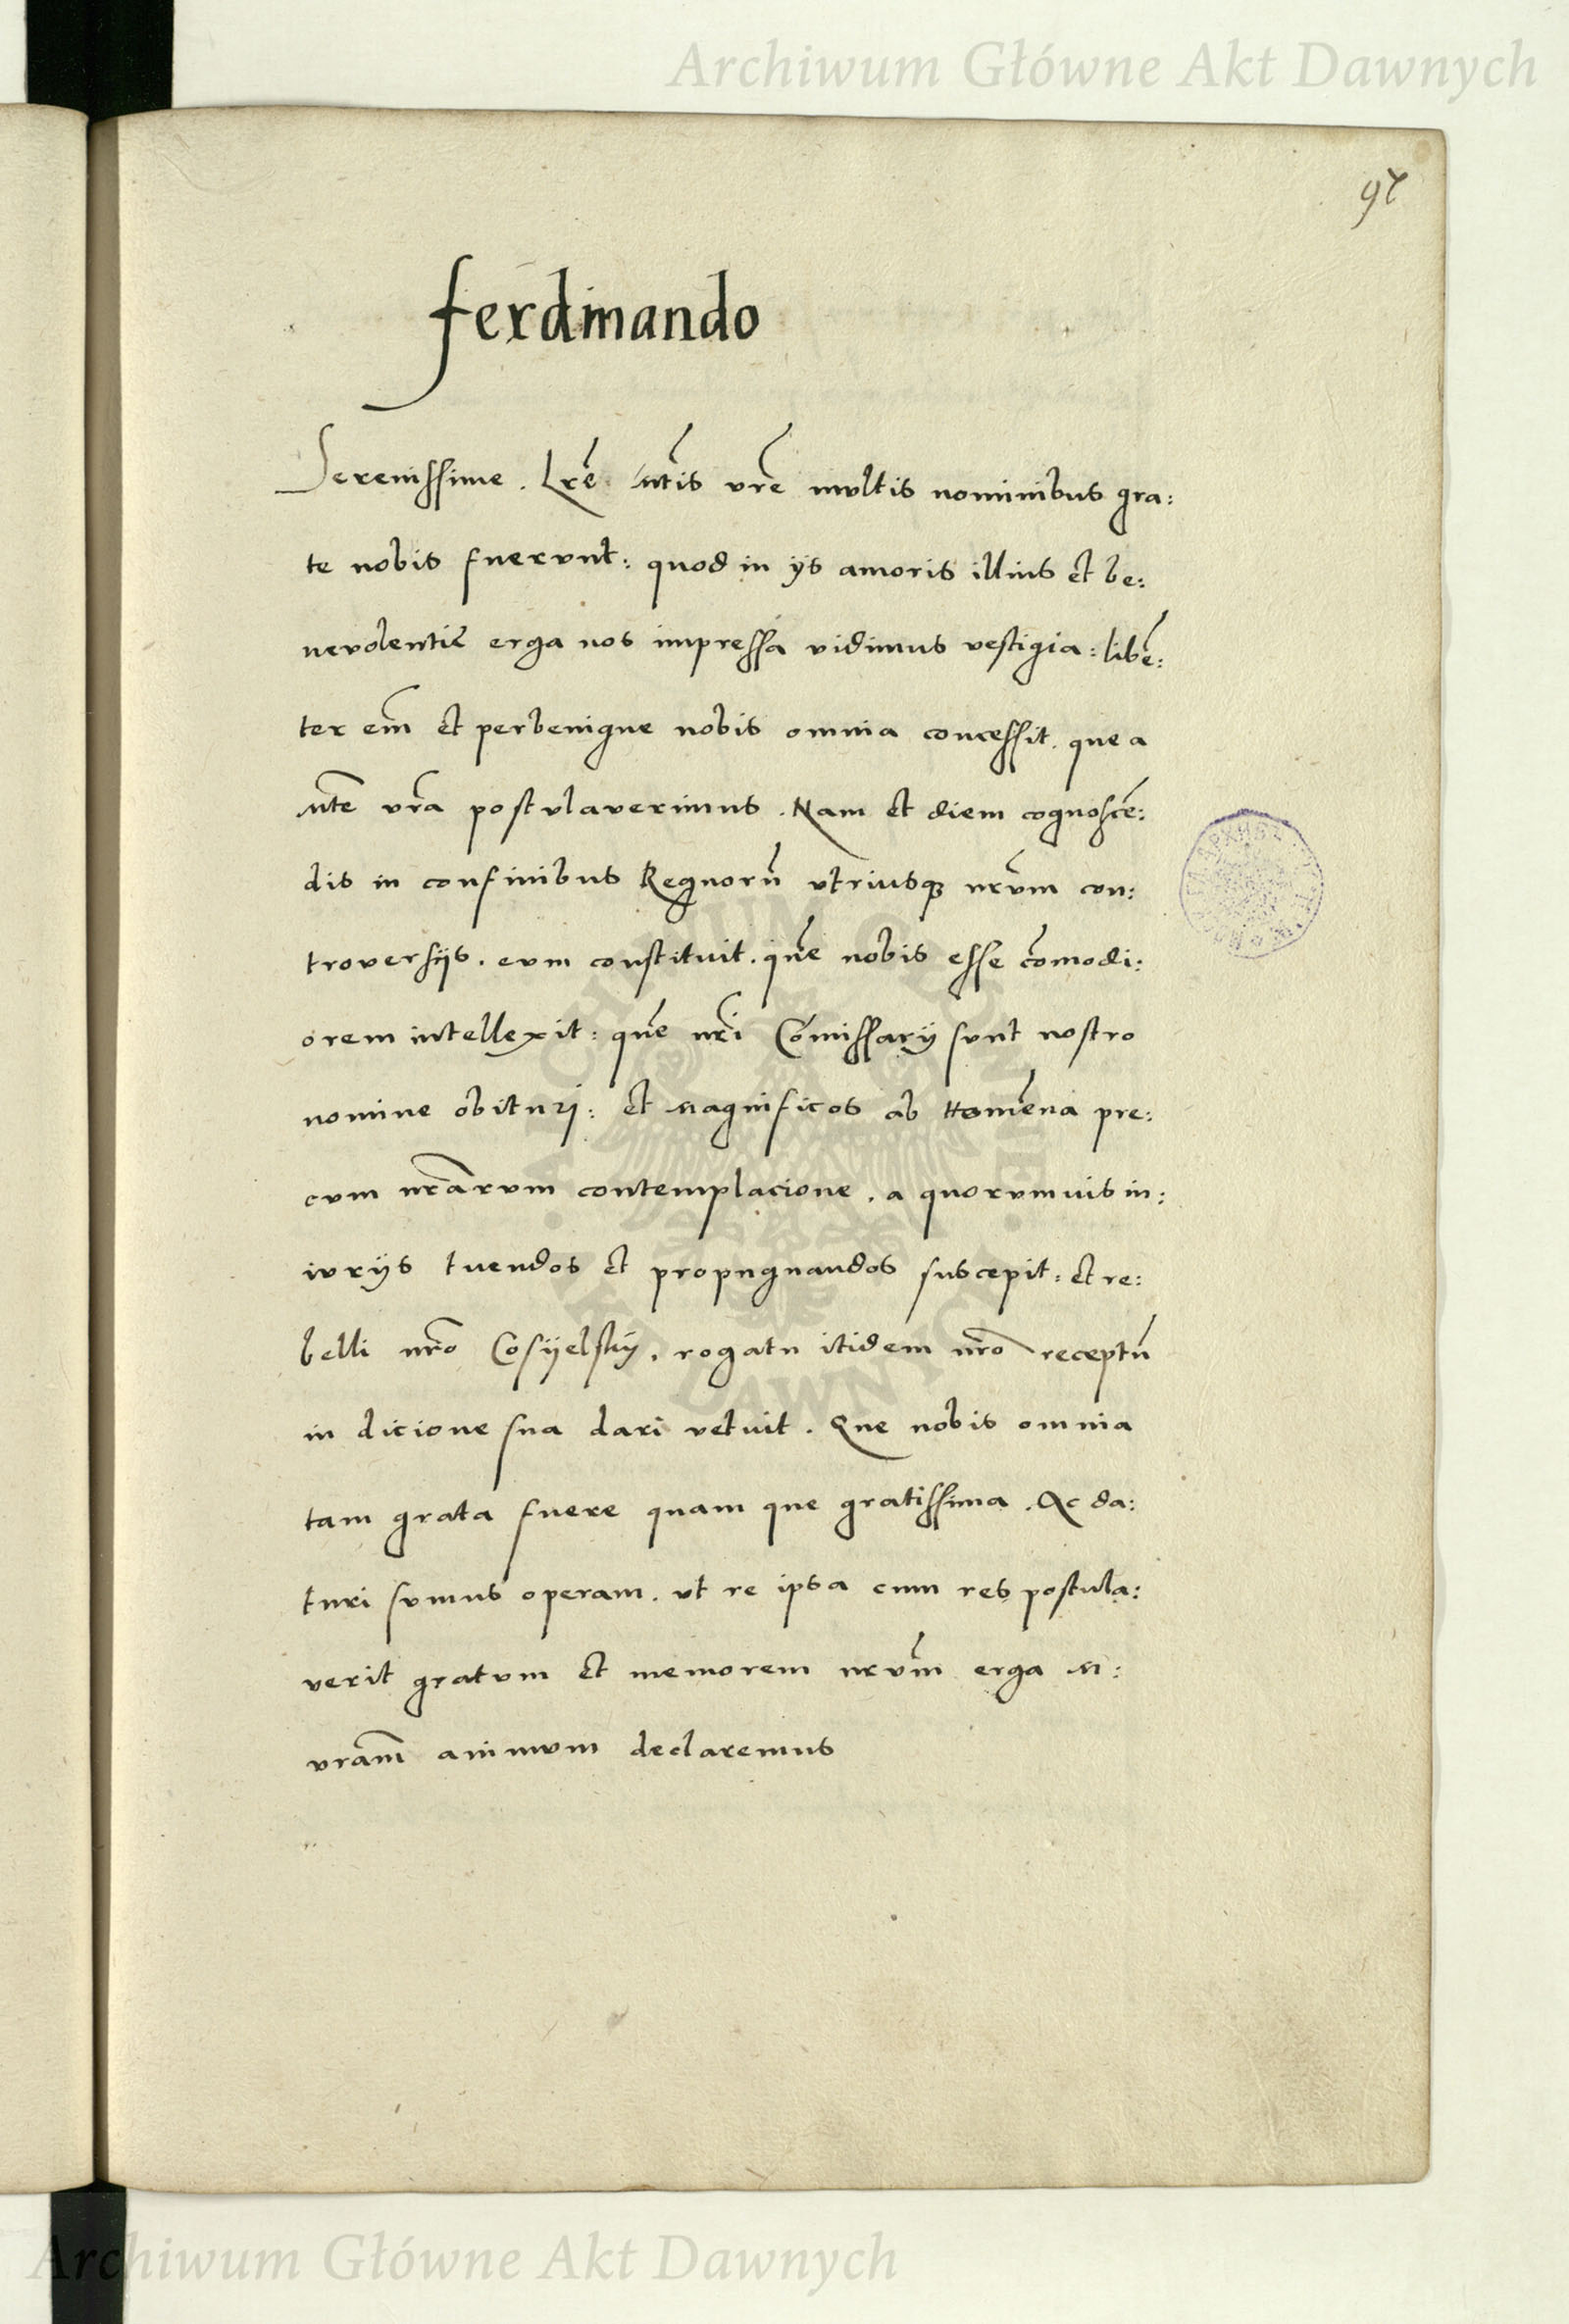 Archiwum Główne Akt Dawnych
97
ferdinando
Serenissime. Lrẽ Mtis vrẽ mvltis nominibus gra:
te nobis fuervnt: quod in ijs amoris illius et be:
nevolentię erga nos impressa vidimus vestigia: libẽ:
ter em̃ et perbenigne nobis omnia concessit. que a
Mte vrã postvlaverimus. Nam et diem cognoscẽ:
dis in confinibus Regnorũ vtriusqꝫ nr̃vm con:
troversijs. evm constituit. quẽ nobis esse cõmodi:
orem intellexit: quẽ nrĩ Cõmissarij svnt nostro
nomine obituri: et Magnificos ab Homẽna pre:
cvm nrãrvm contemplacione. a quorvmuis in:
ivrijs tuendos et propugnandos suscepit: et re:
belli nrõ Cosijelskij. rogatu itidem nrõ receptũ
in dicione sua dari vetuit. Que nobis omnia
tam grata fuere quam que gratissima. Ac da:
turi svmus operam. vt re ipsa cum res postula:
verit gratvm et memorem nrṽm erga M:
vram̃ animvm declaremus
ARCHIWUM GŁÓWNE
AKT DAWNYCH
Archiwum Główne Akt Dawnych